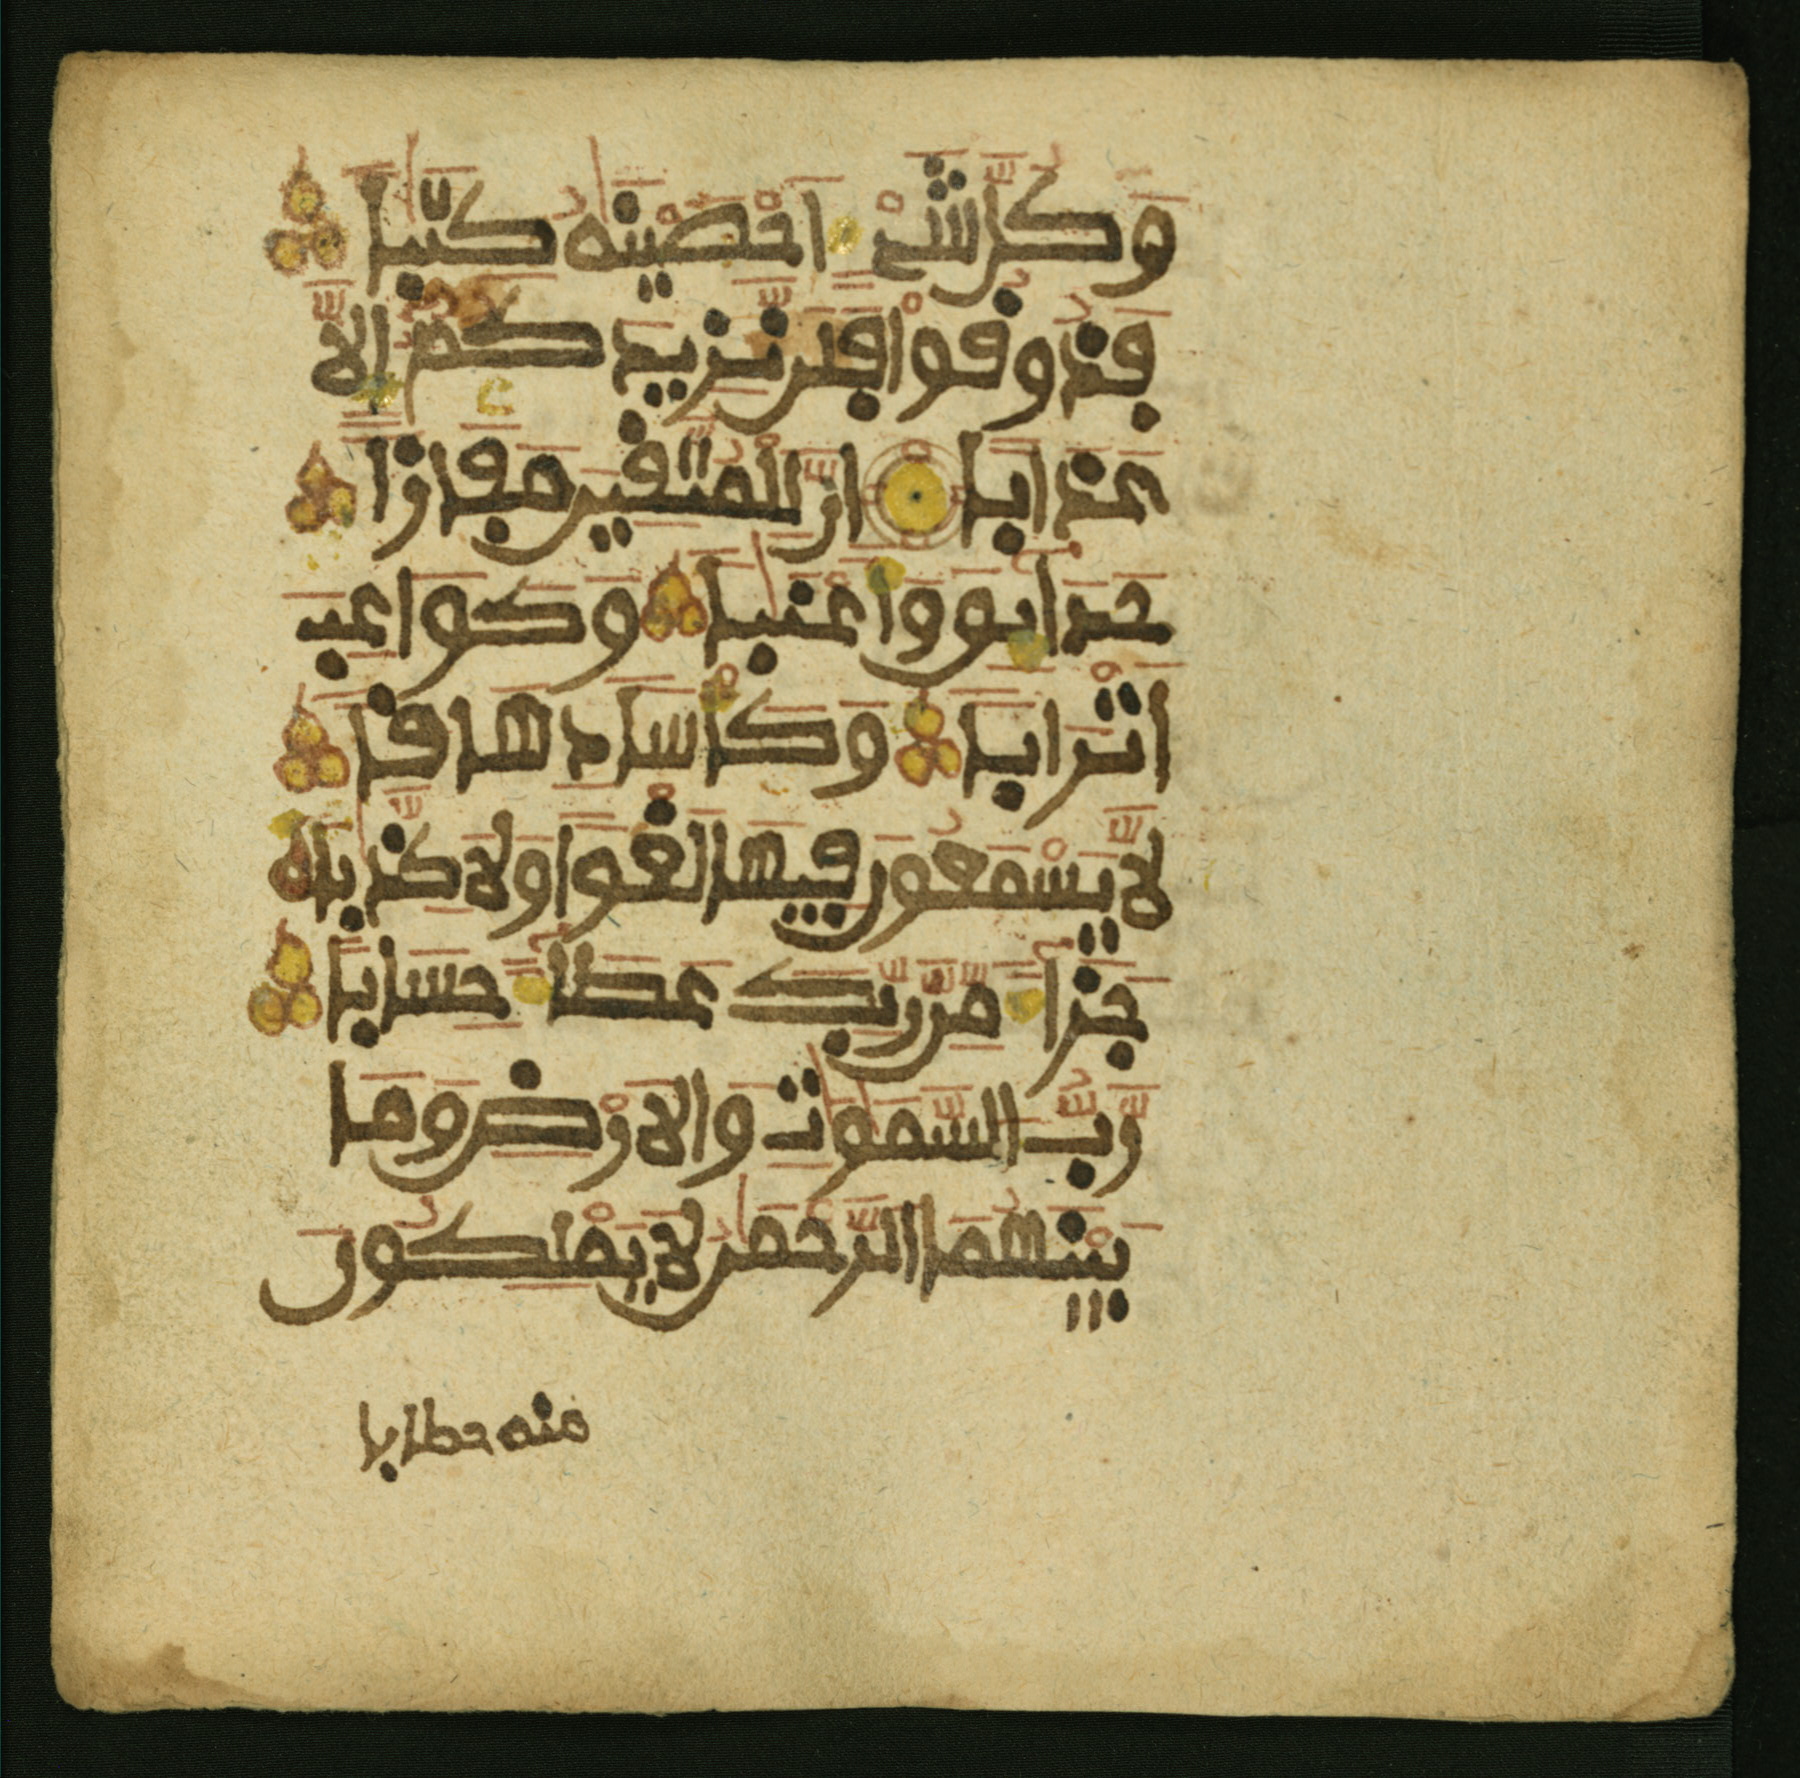 وَكُلَّ شَےْءٍ اَحْصَيْنَٰهُ كِتَٰباً
فَذُوقُواْ فَلَن نَّزِيدَكُمُۥٓ إِلَّا
عَذَاباً اِنَّ لِلْمُتَّقِينَ مَفَازاً
حَدَآئِقَ وَأَعْنَٰباً وَكَوَاعِبَ
أَتْرَاباً وَكَأْساً دِهَاقاً
لَّا يَسْمَعُونَ فِيهَا لَغْواً وَلَا كِذَّٰباً
جَزَآءً مِّن رَّبِّكَ عَطَآءً حِسَاباً
رَّبُّ السَّمَٰوَٰتِ وَالَارْضِ وَمَا
بَيْنَهُمَا الرَّحْمَٰنُ لَا يَمْلِكُونَ
منه خطابا